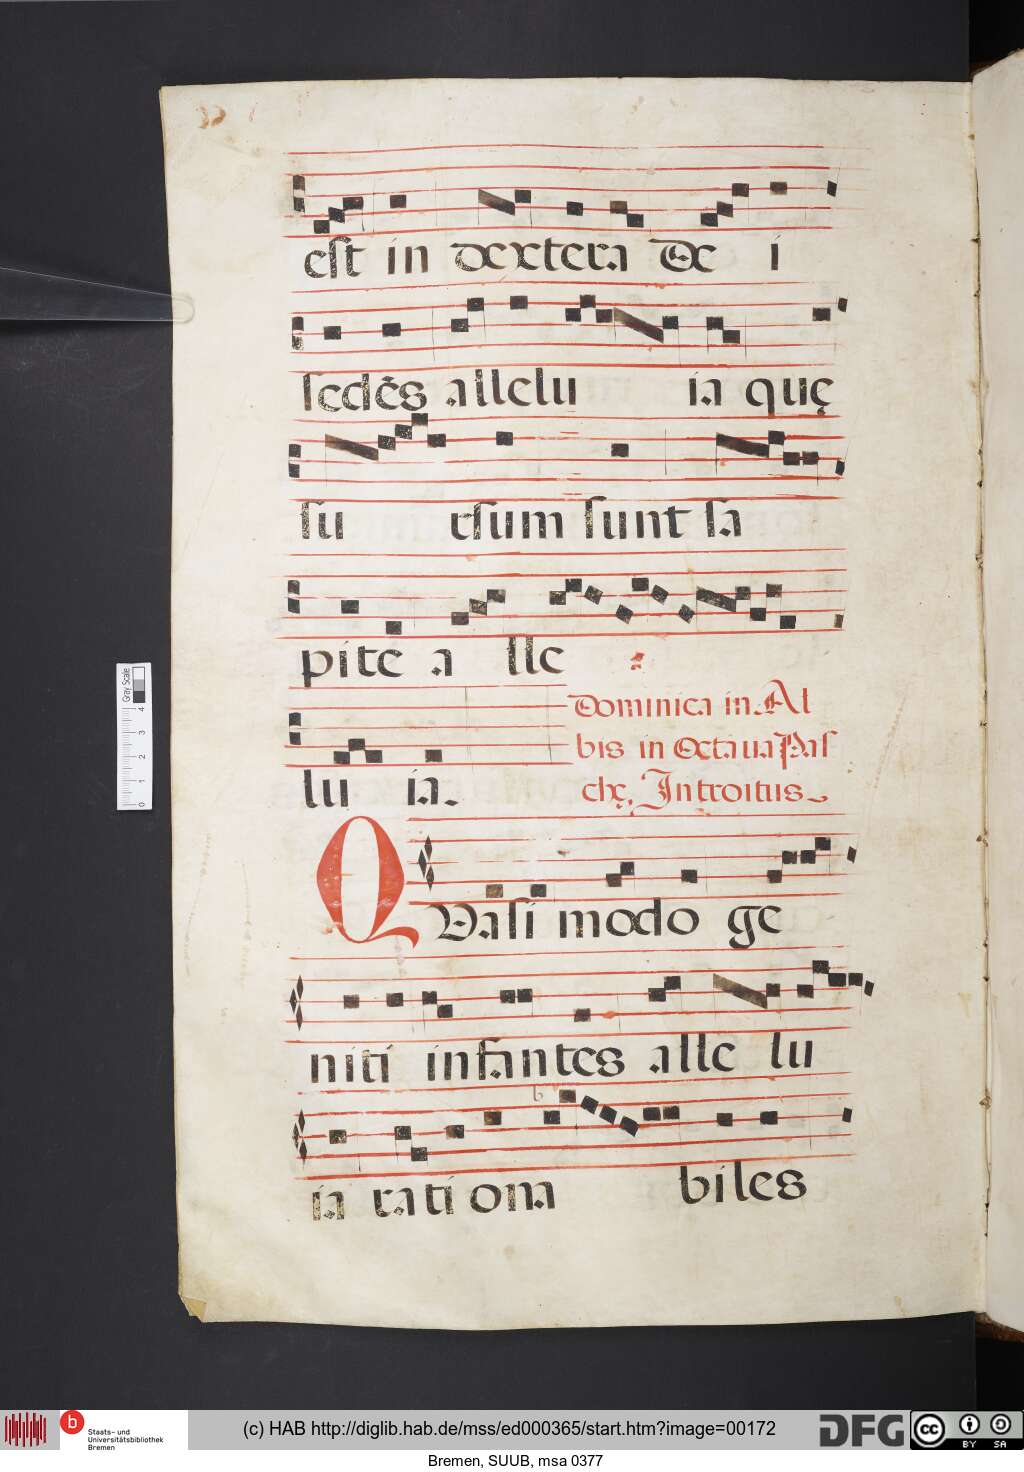 est in dextera De i
sedēs allelu ia quę
su rsum sunt sa
pite a lle
Dominica in Al
bis in Octaua Pas
lu ia.
chę, Introitus
QVasi modo ge
niti infantes alle lu
b
ia rati ona biles
Gray Scale
0 1 2 3 4
b Staats- und
Universitätsbibliothek
Bremen
(c) HAB http://diglib.hab.de/mss/ed000365/start.htm?image=00172
DFG
cc BY SA
Bremen, SUUB, msa 0377